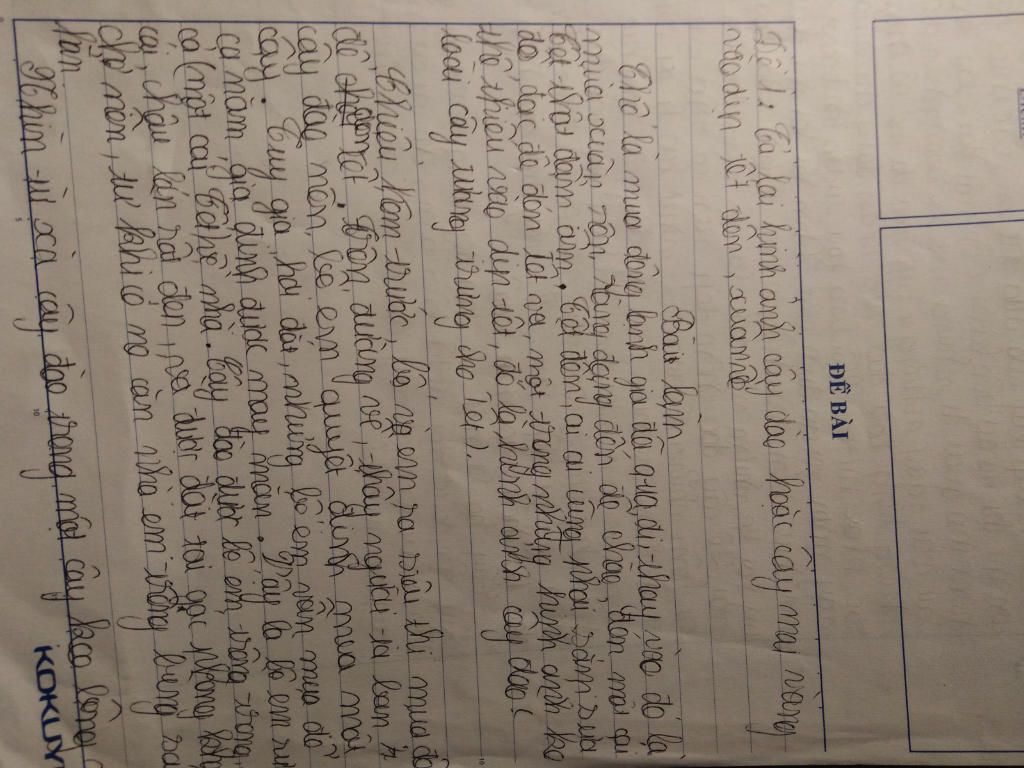 ĐỀ BÀI
Đề 1: Tả lại hình ảnh cây đào hoặc cây mai vàng
vào dịp tết đến, xuân về
Bài làm
Thế là mùa đông lạnh giá đã qua đi thay vào đó là
mùa xuân rộn ràng đang đến để chào đón một cái
tết thật đầm ấm. Tết đến, ai ai cũng phải sắm sửa
đồ đạc để đón Tết và một trong những hình ảnh ko
thể thiếu vào dịp tết, đó là hình ảnh cây đào
loài cây tượng trưng cho Tết.
Chiều hôm trước, bố và em ra siêu thị mua đồ
để Tết. Trên đường về, thấy người ta bán
cây đào nên bố em quyết định mua một
cây. Tuy giá hơi đắt, nhưng bố em vẫn mua để
cả năm gia đình được may mắn. Vậy là bố em
cả một cây về nhà. Cây đào được bố em trồng trong
cái chậu lớn rất đẹp, và được đặt tại góc phòng
từ khi có nó căn nhà em trông bừng
hẳn
Nhìn từ xa cây đào trông một cây kẹo bông
KOKUY